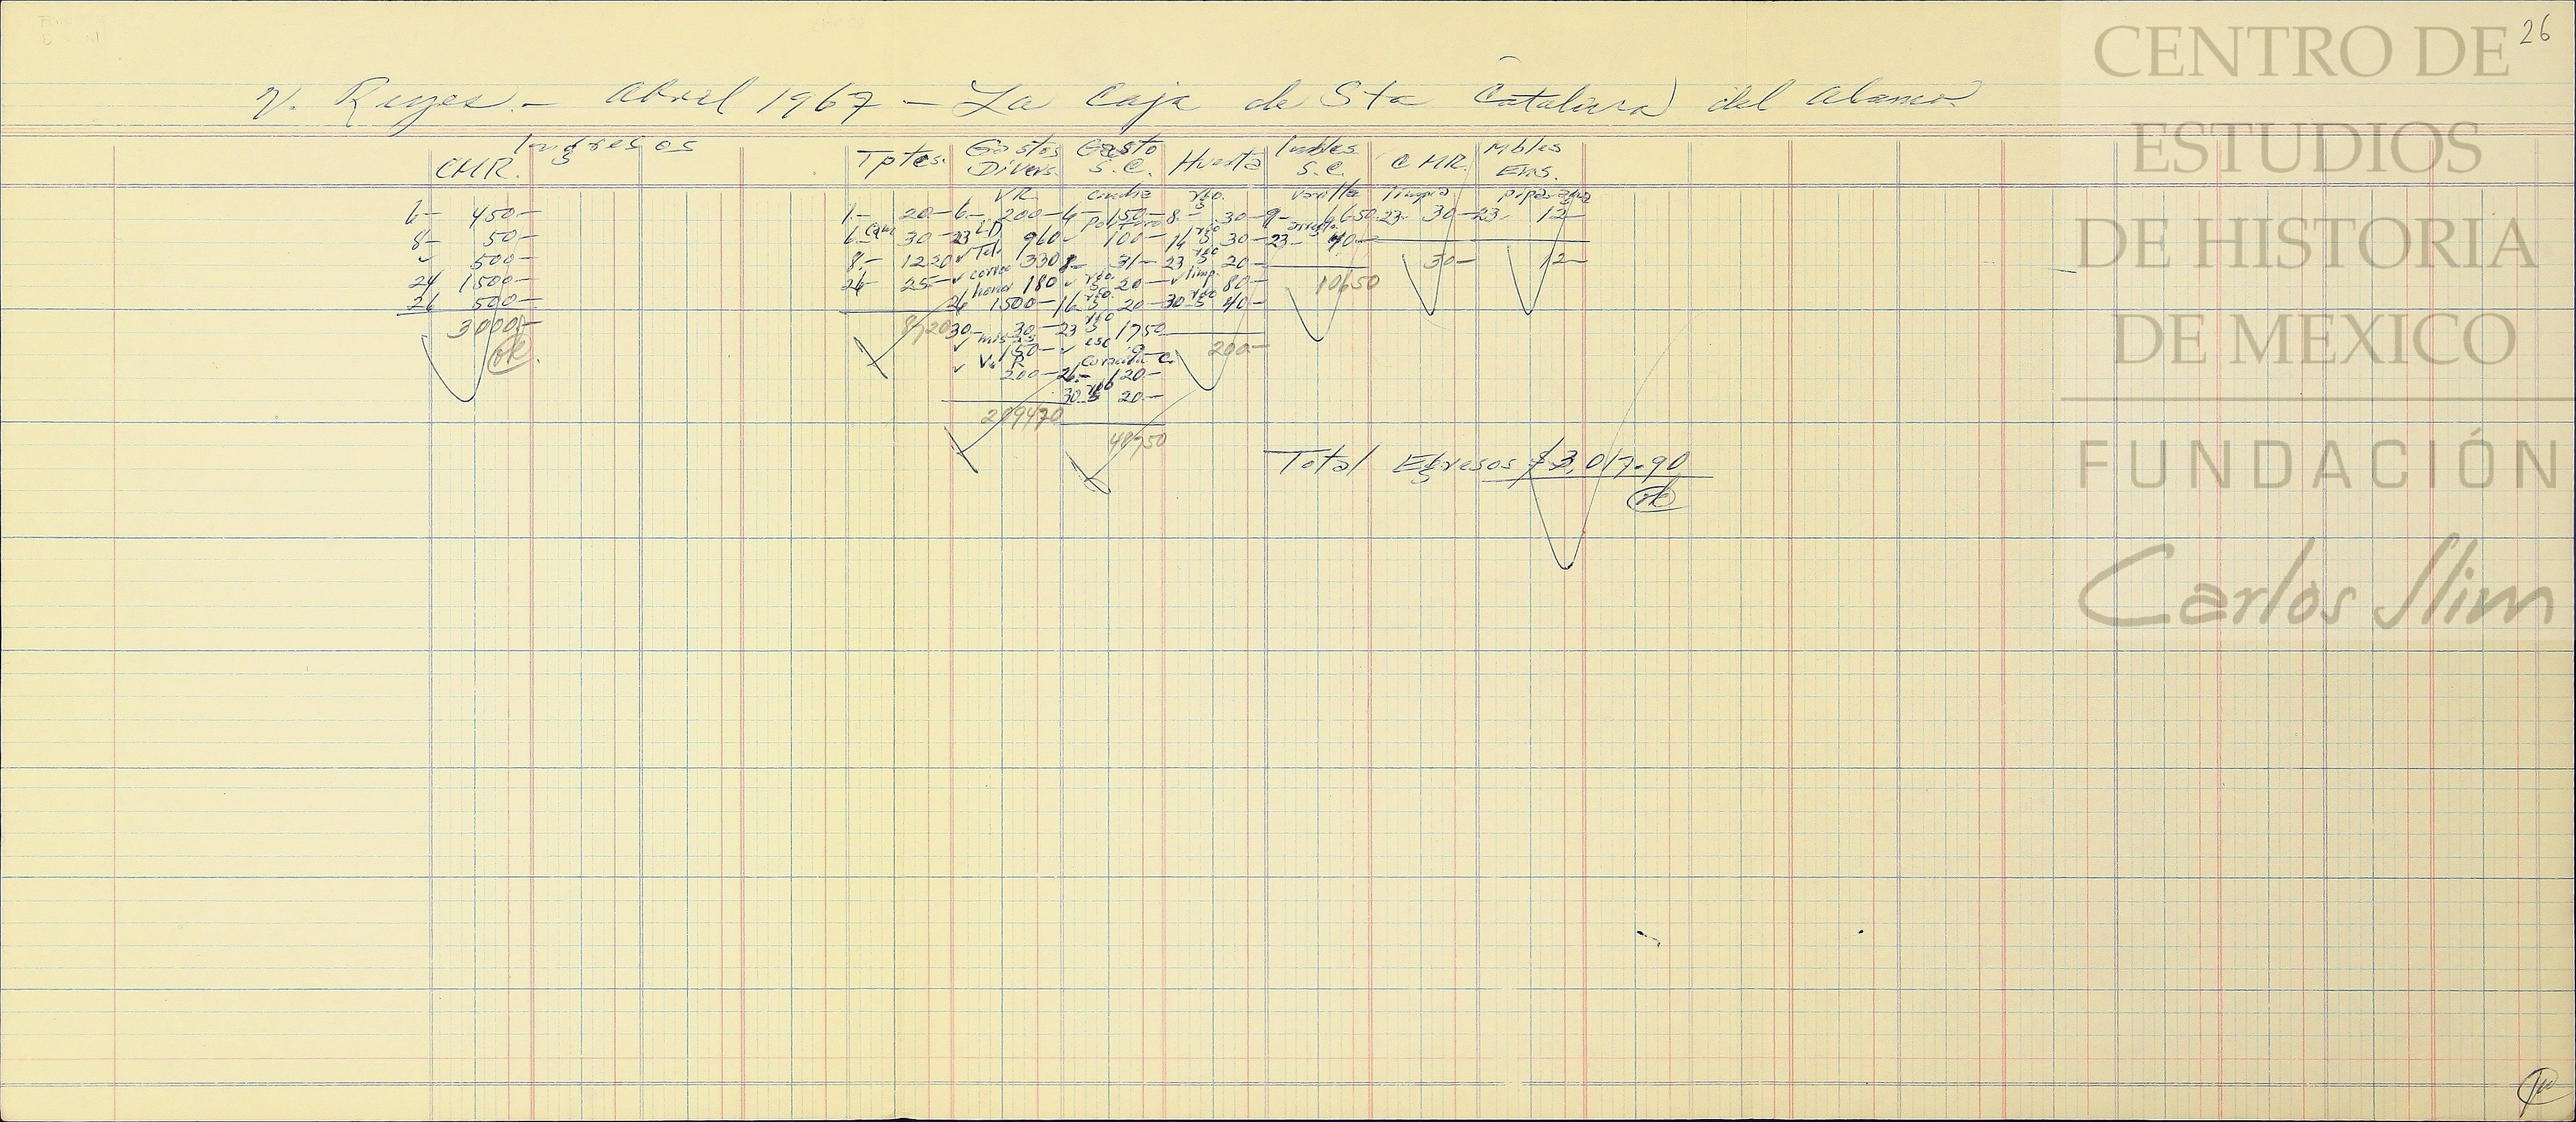 26
V. Reyes.- Abril 1967 - La Caja de Sta Catalina del Alamo.
Ingresos
CMR.
6- 450-
8- 50-
✓ 500-
24 1500-
26 500-
3000.-
ok.
Tptes.
1.- 20-
6.- 30-
8.- 1220
26- 25-
8720
Gastos
Divers.
VR.
6.- 200-
23 LD 960
✓ Tel. 330
✓ correo 180
26 honor 1500-
30.- 30-
150-
✓ V. R 200-
209470
Gasto
S. C.
6- 150-
100-
8- 31-
20-
16 20-
23 1750
✓ 9-
26.- 120-
30.- 20-
48750
Huerta
8.- 30-
14 30-
23 20-
✓ limp. 80-
30 40-
200-
Imbles
S. C.
varilla
9- 6650
23- 40-
10650
C MR.
limpia
23- 30-
30-
Mbles
Ens.
pipa agua
23- 12-
12-
Total Egresos $3,017.90
ok
CENTRO DE
ESTUDIOS
DE HISTORIA
DE MEXICO
FUNDACIÓN
Carlos Slim